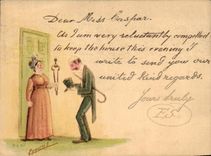 Dear Miss Caspar.
As I am very reluctantly compelled
to keep the house this evening I
write to send you our
united kind regards.
Yours truly
E.S.